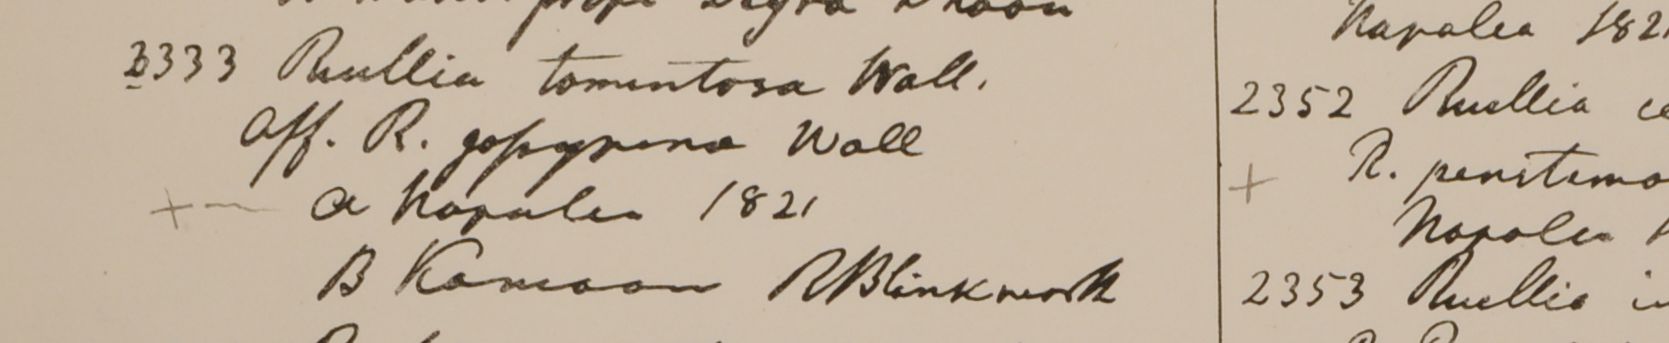 prope Deyra Dhoon
2333 Ruellia tomentosa Wall.
Aff. R. gossypina Wall
+ — a Napalea 1821
B Kamaon RBlinkworth
Napalea 1821
2352 Ruellia
+ R. penstemo
Napalea
2353 Ruellia